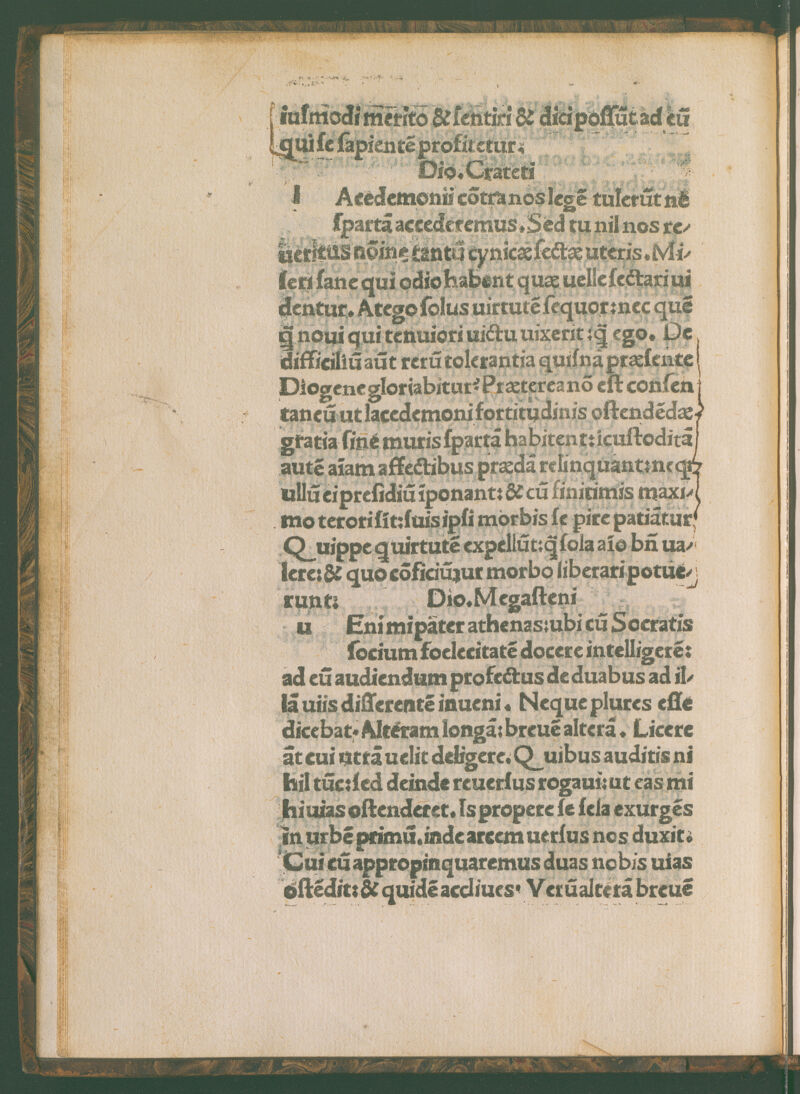 iuſmodi merito & ſentiri & dici poſſūt ad eū
qui ſe ſapientē profitetur;
Dio. Crateti
l Acedemonii cōtra nos legē tulerūt nē
ſpartā accederemus. Sed tu nil nos re⸗
ueritus nōine tantū cynicæ ſectæ uteris. Mi⸗
ſeri ſane qui odio habent quæ uelle ſectari ui
dentur. At ego ſolus uirtutē ſequor: nec quē
q̄ noui qui tenuiori uictu uixerit: q̄ ego. De
difficiliū aūt rerū tolerantia quiſnā præſente
Diogene gloriabitur? Præterea nō eſt conſen
taneū ut lacedemoni fortitudinis oſtendēdæ
gratia ſine muris ſpartā habitent: icuſtoditā
autē aīam affectibus prædā relinquant: neqꝫ
ullū ei preſidiū īponant: & cū finitimis maxi⸗
mo terori ſīt: ſuis ipſi morbis ſe pire patiātur
Quippe q uirtutē expellūt: q̄ ſola aīo bn̄ ua⸗
lere: & quo cōficiūꝫur morbo liberari potue⸗
runt; Dio. Megaſteni
u Eni mi pater athenas: ubi cū Socratis
ſocium foelecitatē docere intelligerē:
ad eū audiendum profectus de duabus ad il⸗
lā uiis differentē inueni. Neque plures eſſe
dicebat. Alteram longā: breuē alterā. Licere
āt cui utrā uelit deligere. Quibus auditis ni
hil tūc: ſed deinde reuerſus rogaui: ut eas mi
hi uias oſtenderet. Is propere ſe ſela exurgēs
in urbē primū. inde arcem uerſus nos duxit.
Cui cū appropinquaremus duas nobis uias
oſtēdit: & quidē accliues. Verū alterā breuē